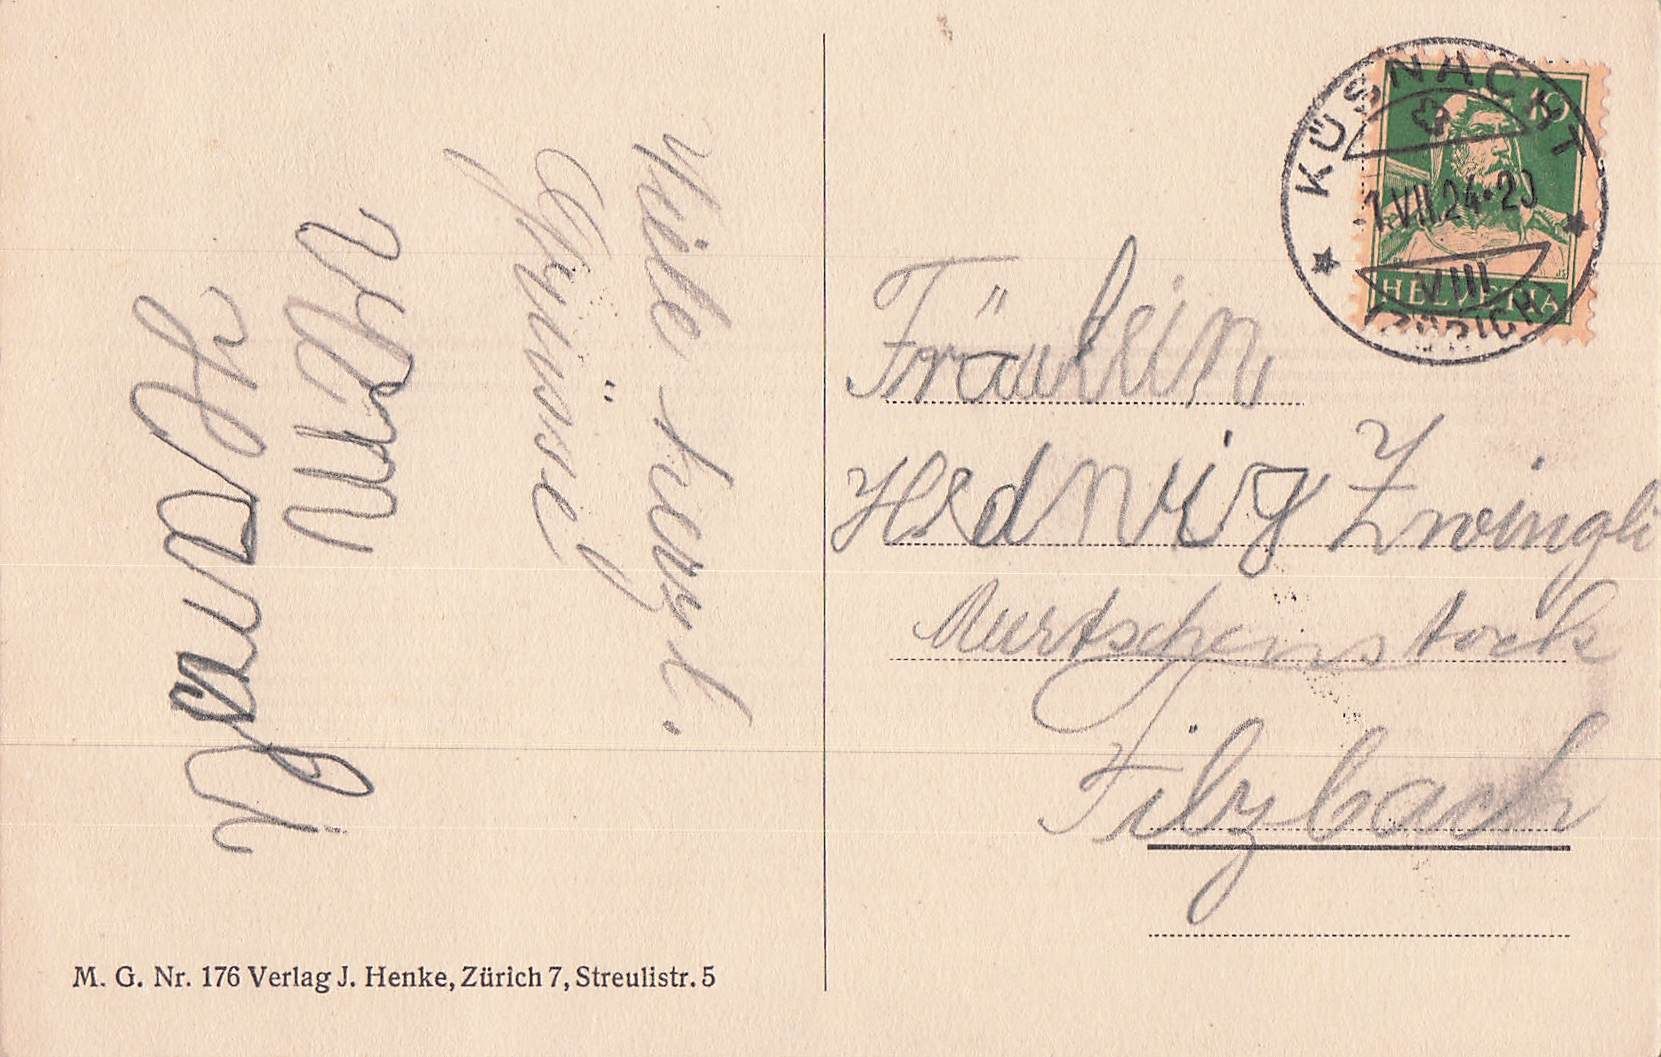 Viele herzl.
Grüsse!
KÜSNACHT
-1.VII.24-20
VIII
(ZÜRICH)
10
HELVETIA
Fräulein
Hedwig Zwingli
Murtschenstock
Filzbach
M. G. Nr. 176 Verlag J. Henke, Zürich 7, Streulistr. 5